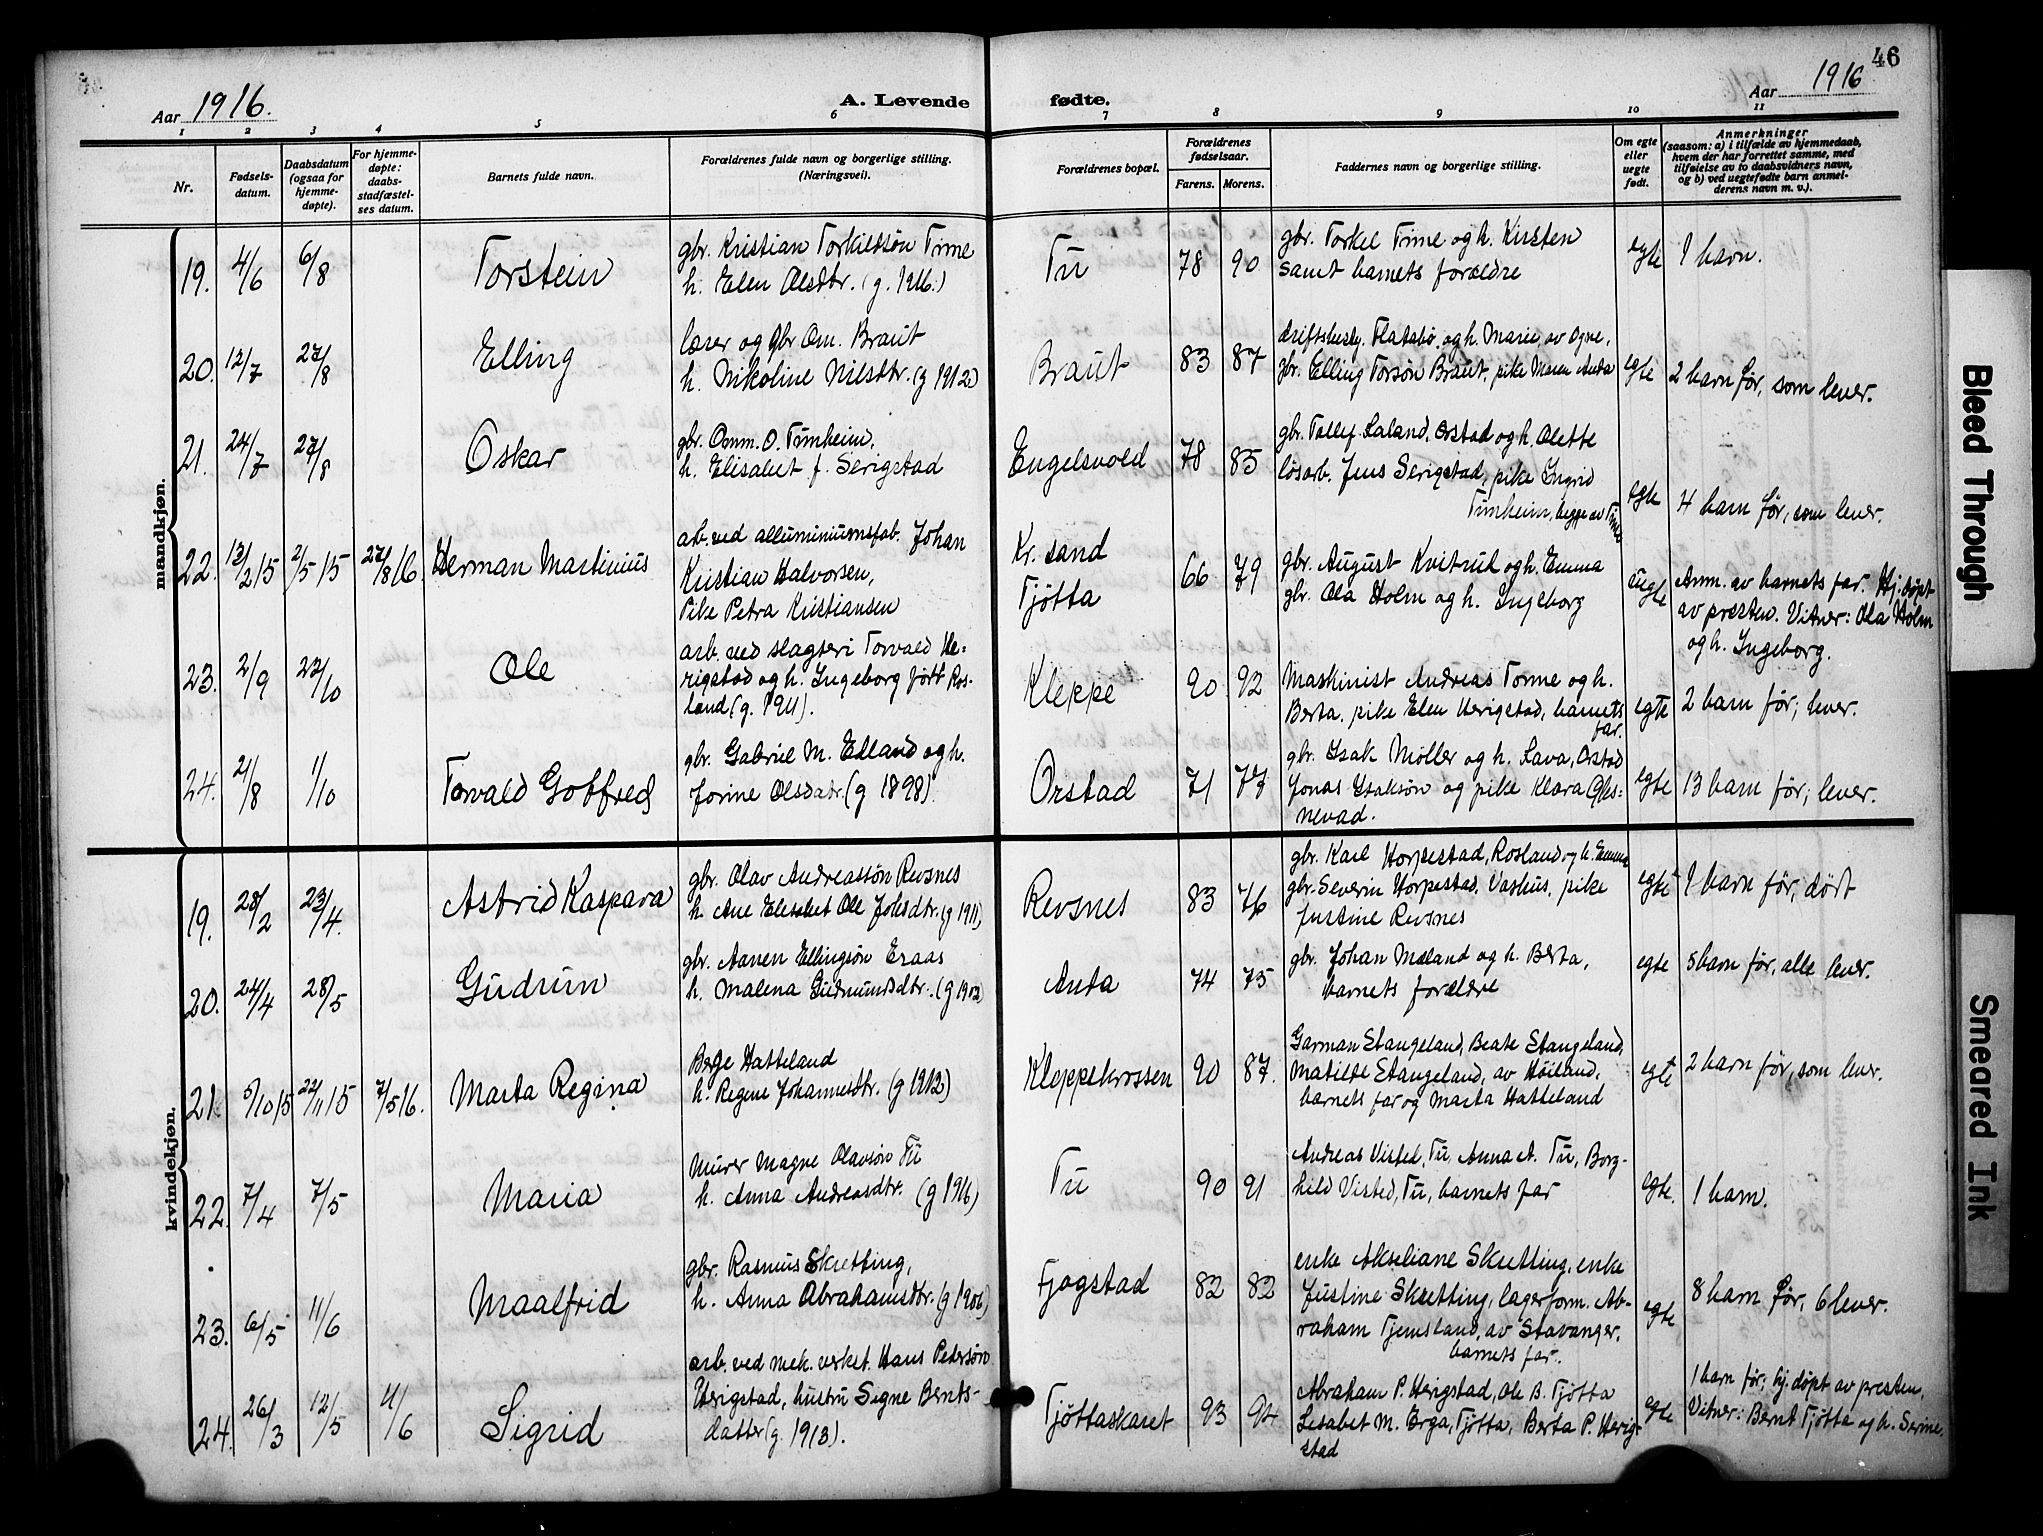 46
Aar 1916.
A. Levende fødte.
Aar 1916
1 2 3 4 5 6 7 8 9 10 11
Nr.
Fødsels-
datum.
Daabsdatum
(ogsaa for
hjemme-
døpte).
For hjemme-
døpte:
daabs-
stadfæstel-
ses datum.
Barnets fulde navn.
Forældrenes fulde navn og borgerlige stilling.
(Næringsvei).
Forældrenes bopæl.
Forældrenes
fødselsaar.
Farens. Morens.
Faddernes navn og borgerlige stilling.
Om egte
eller
uegte
født.
Anmerkninger
(saasom: a) i tilfælde av hjemmedaab,
hvem der har forrettet samme, med
tilføielse av to daabsvidners navn,
og b) ved uegtefødte barn anmel-
derens navn m. v.).
mandkjøn.
19. 4/6 6/8 Torstein
gbr. Kristian Torkildsøn Time
h. Elen Olsdtr. (g. 1916.)
Tu 78 90
gbr. Torkel Time og h. Kirsten
samt barnets forældre
egte 1 barn.
20. 12/7 27/8 Elling
lærer og gbr Om. Braut
h. Nikoline Nilsdtr. (g 1912)
Braut 83 87
driftsbesty. Flatabø og h. Marie, av Ogne,
gbr. Elling Torsøn Braut, pike Maren Anda
egte 2 barn før, som lever.
21. 24/7 27/8 Oskar
gbr. Omm. O. Timheim,
h. Elisabet f. Serigstad
Engelsvold 78 85
gbr. Tollef Laland, Orstad og h. Olette
løsarb. Jens Serigstad, pike Ingrid
Timheim, begge av Time
egte 4 barn før, som lever.
22. 13/2 15 2/5 15 27/8 16. Herman Martinius
arb. ved alluminiumsfab. Johan
Kristian Halvorsen,
Pike Petra Kristiansen
Kr. sand
Tjøtta 66 79
gbr. August Kvitrud og h. Emma
gbr. Ola Holm og h. Ingeborg
uegte
Anm. av barnets far. Hj. døpt
av presten. Vitner: Ola Holm
og h. Ingeborg.
23. 2/9 22/10 Ole
arb. ved slagteri Torvald He-
rigstad og h. Ingeborg født Ros-
land (g. 1911).
Kleppe 90 92
Maskinist Andreas Torme og h.
Berta, pike Elen Herigstad, barnets
far.
egte 2 barn før, lever.
24. 2/8 1/10 Torvald Gotfred
gbr. Gabriel M. Edland og h.
Jorine Olsdatr. (g 1898).
Orstad 71 77
gbr. Isak Møller og h. Lava, Orstad
Jonas Isaksøn og pike Klara Gles-
nevad.
egte 13 barn før, lever.
kvindekjøn.
19. 28/2 23/4. Astrid Kaspara
gbr. Olav Andreassøn Revsnes
h. Ane Elisabet Ole Johsdtr. (g 1911)
Revsnes 83 76
gbr. Karl Horpestad, Rosland og h. Emma
gbr. Severin Horpestad, Vashus, pike
Justine Revsnes
egte 1 barn før, dødt
20. 24/4 28/5 Gudrun
gbr. Aanen Ellingsøn Eraas
h. Malena Gudmundsdtr. (g 1902)
Anda 74 75
gbr. Johan Mæland og h. Berta,
barnets forældre
egte 5 barn før, alle lever.
21. 5/10 15 22/11 15 7/5 16. Marta Regina
Berge Hatteland
h. Regine Johannesdtr. (g 1912)
Kleppekrossen 90 87.
Garman Stangeland, Beate Stangeland,
Matilde Stangeland, av Høiland,
barnets far og Marta Hatteland
egte 2 barn før, som lever.
22. 7/4 7/5 Maria
Murer Magne Olavsøn Tu
h. Anna Andreasdtr. (g 1916)
Tu 90 91
Andreas Visted, Tu, Anna A. Tu, Borg-
hild Visted, Tu, barnets far
egte. 1 barn.
23. 6/5 11/6 Maalfrid
gbr. Rasmus Skretting,
h. Anna Abrahamsdtr. (g 1906)
Fjogstad 82 82
enke Akseliane Skretting, enke
Justine Skretting, lagerform. Ab-
raham Tjemsland, av Stavanger,
barnets far.
egte 8 barn før, 6 lever.
24. 26/3 12/5 11/6 Sigrid
arb. ved mek. verket. Hans Petersøn
Herigstad, hustru Signe Bernts-
datter (g. 1913).
Tjøttaskaret 93 94
Abraham P. Herigstad, Ole B. Tjøtta
Lisabet M. Erga, Tjøtta, Berta P. Herig-
stad
egte
1 barn før; hj. døpt av presten.
Vitner: Bernt Tjøtta og h. Serine.
Bleed Through
Smeared Ink